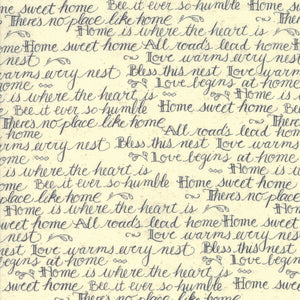 Sweet home Bee it ever so humble Home
There's no place like home
Home is where the heart is
Home sweet home All roads lead home
nest Love warms every nest
warms every nest Bless this nest Love w
Love begins at home
is where the heart is Home sweet ho
Bee it ever so humble Home sweet home
There's no place like home
home All roads lead home
nest Love warms every nest
warms every nest Bless this nest
Love begins at home
is where the heart is
Bee it ever so humble Home sweet h
There's no place like home
Home is where the heart is Home
Home sweet home All roads lead h
Love warms every nest
arms every nest Bless this nest
egins at home Love begins
is where the heart is Home sweet
Bee it ever so humble Home swe
There's no place like home